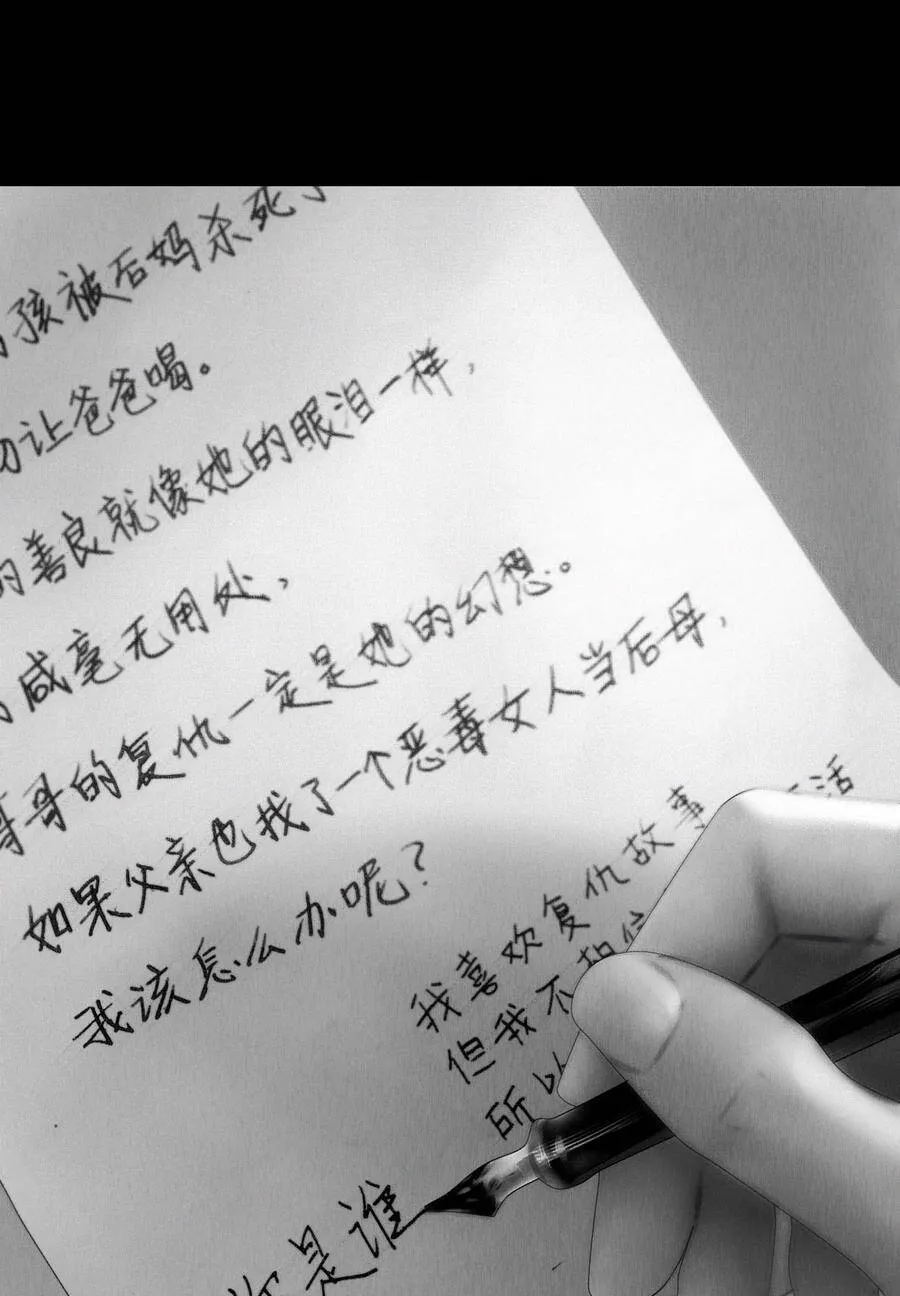 孩被后妈杀死了
让爸爸喝。
的善良就像她的眼泪一样，
咸毫无用处，
哥哥的复仇一定是她的幻想。
如果父亲也找了一个恶毒女人当后母，
我该怎么办呢？
我喜欢复仇故事 活
但我不相信
所以
你是谁